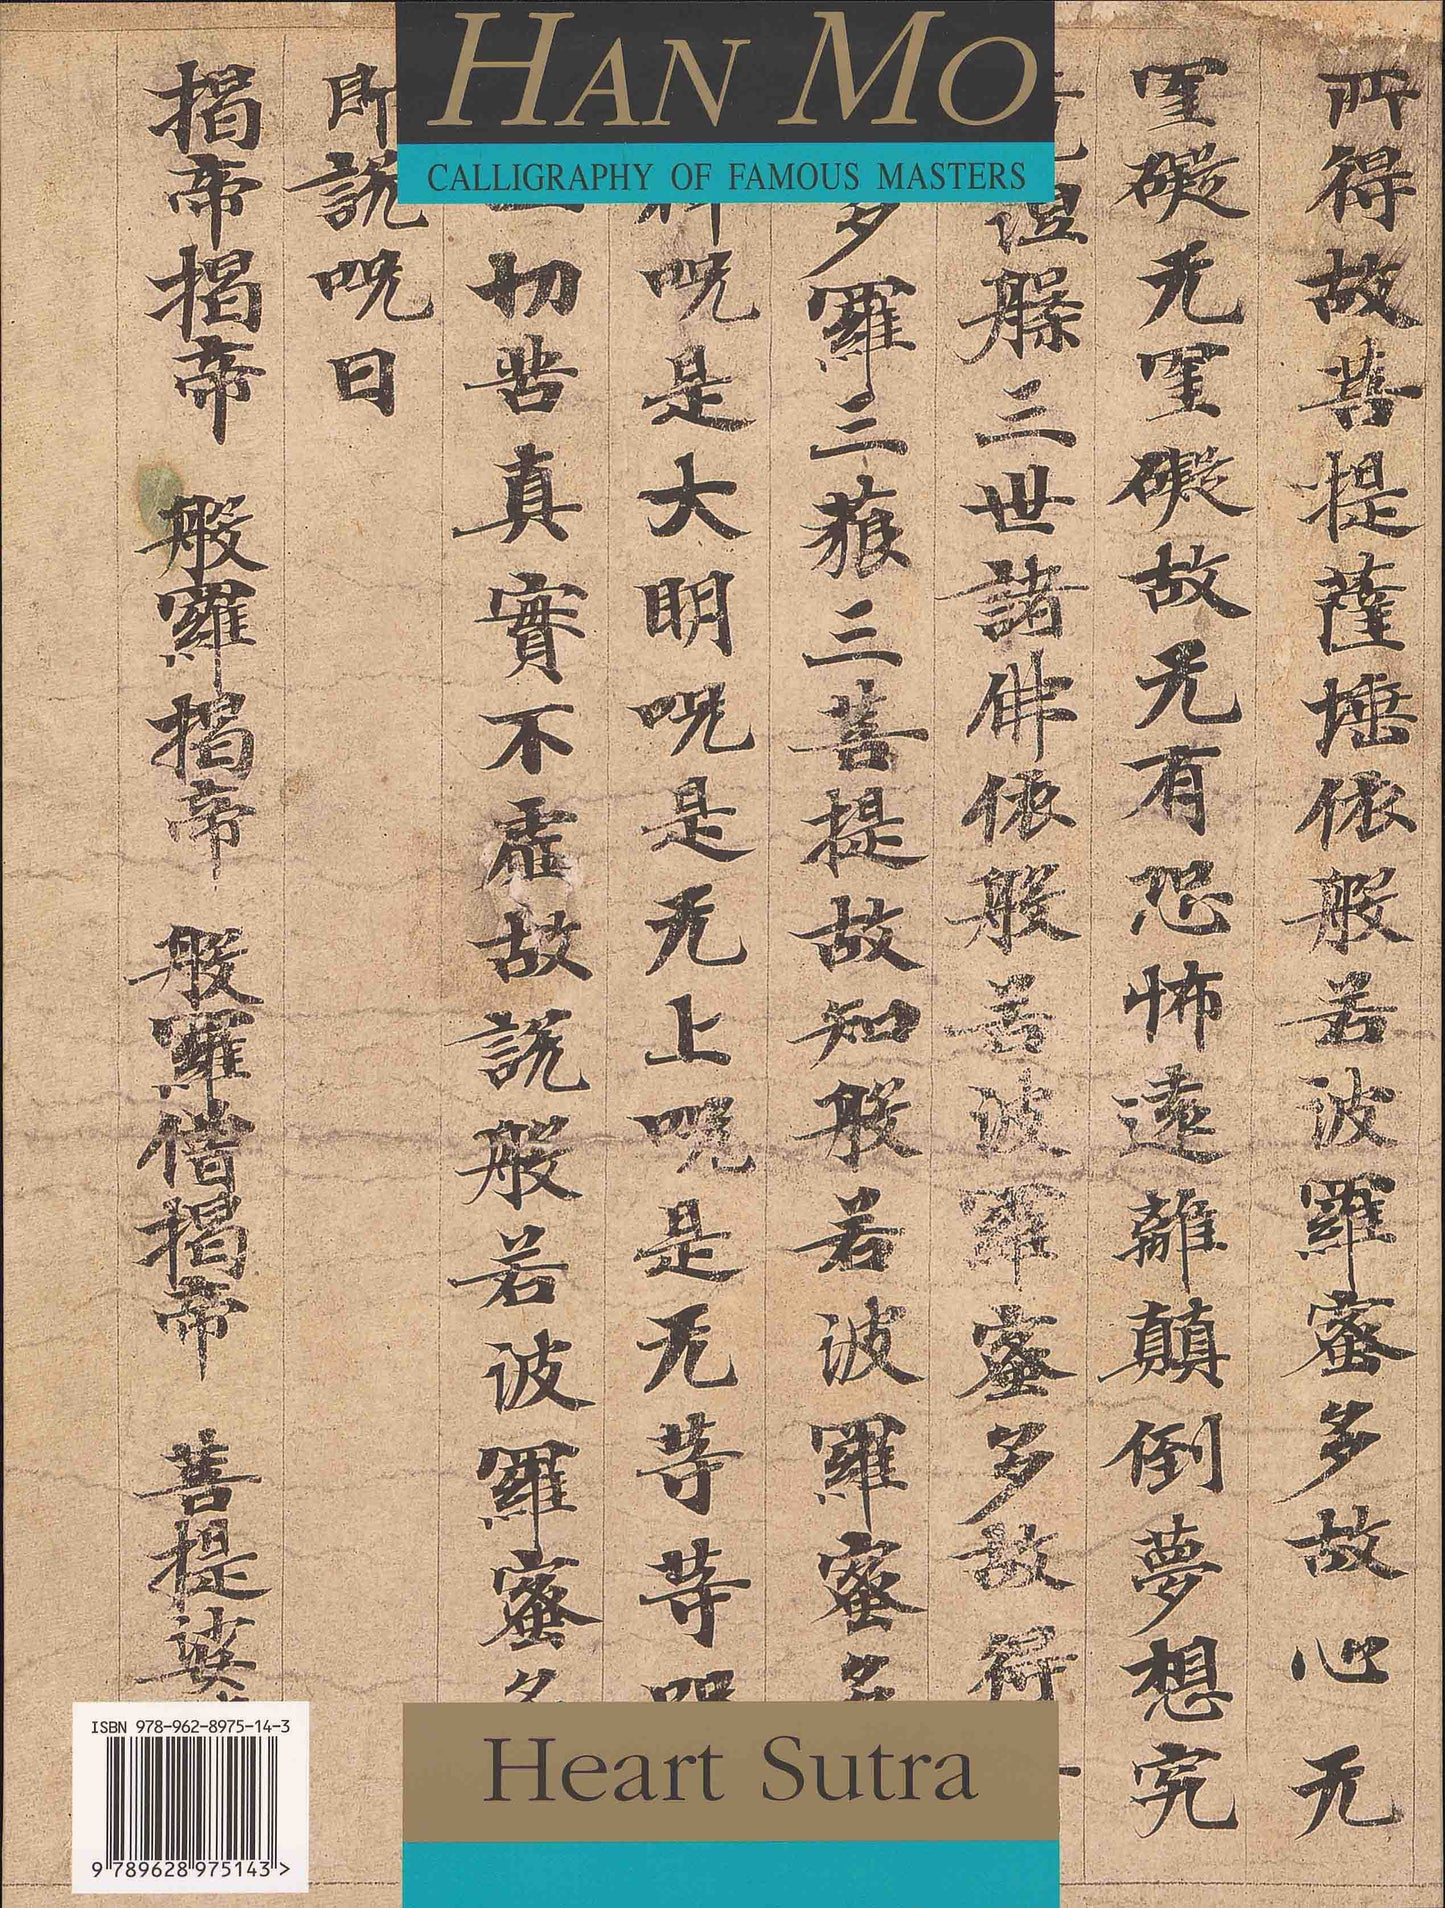 HAN MO
CALLIGRAPHY OF FAMOUS MASTERS
所得故菩提薩埵依般若波羅蜜多故心无
罣礙无罣礙故无有恐怖遠離顛倒夢想究
涅槃三世諸佛依般若波羅蜜多故得
多羅三藐三菩提故知般若波羅蜜多
呪是大明呪是无上呪是无等等呪
切苦真實不虛故說般若波羅蜜多
即說呪曰
揭帝揭帝 般羅揭帝 般羅僧揭帝 菩提娑
Heart Sutra
ISBN 978-962-8975-14-3
9 789628 975143 >